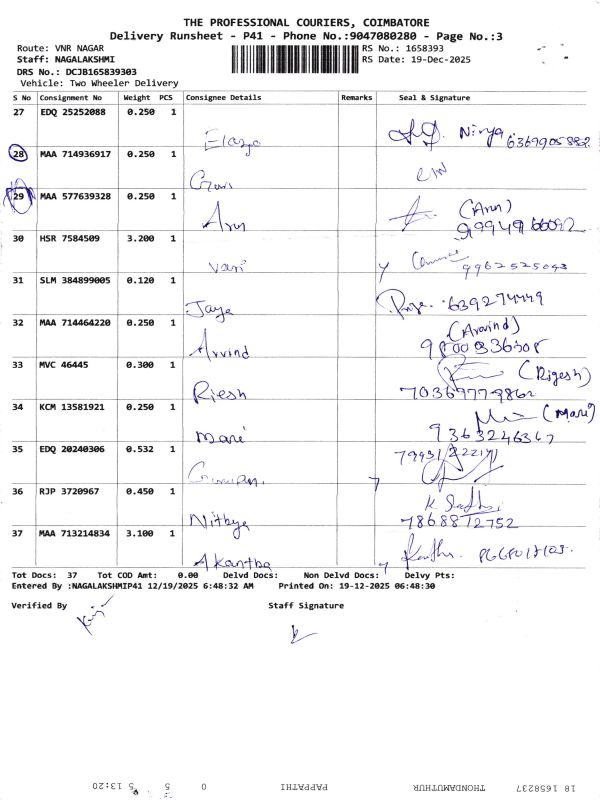 THE PROFESSIONAL COURIERS, COIMBATORE
Delivery Runsheet - P41 - Phone No.:9047080280 - Page No.:3
Route: VNR NAGAR RS No.: 1658393
Staff: NAGALAKSHMI RS Date: 19-Dec-2025
DRS No.: DCJB165839303
Vehicle: Two Wheeler Delivery
S No Consignment No Weight PCS Consignee Details Remarks Seal & Signature
27 EDQ 25252088 0.250 1
Nivya 6369905882
28 MAA 714936917 0.250 1
29 MAA 577639328 0.250 1
Arun (Arun)
30 HSR 7584509 3.200 1
vani 9962525043
31 SLM 384899005 0.120 1
Jaya 639274449
32 MAA 714464220 0.250 1
Arvind (Aravind)
33 MVC 46445 0.300 1
Riesh (Rigesh)
34 KCM 13581921 0.250 1
mari (mari)
9363246367
35 EDQ 20240306 0.532 1
36 RJP 3720967 0.450 1
Nithya
37 MAA 713214834 3.100 1
Akantha
Tot Docs: 37 Tot COD Amt: 0.00 Delvd Docs: Non Delvd Docs: Delvy Pts:
Entered By :NAGALAKSHMIP41 12/19/2025 6:48:32 AM Printed On: 19-12-2025 06:48:30
Verified By Staff Signature
18 1658237 THONDAMUTHUR PAPPATHI 0 5 5 13:20